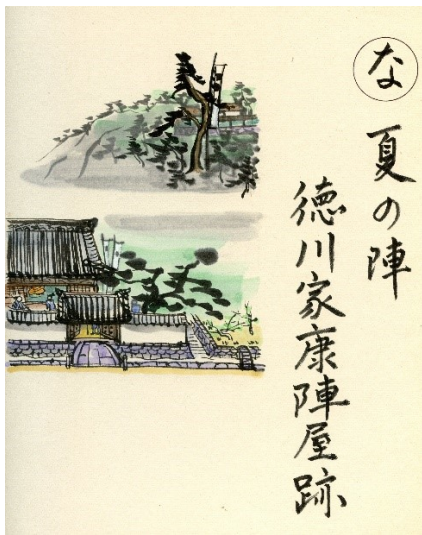 な
夏の陣
徳川家康陣屋跡